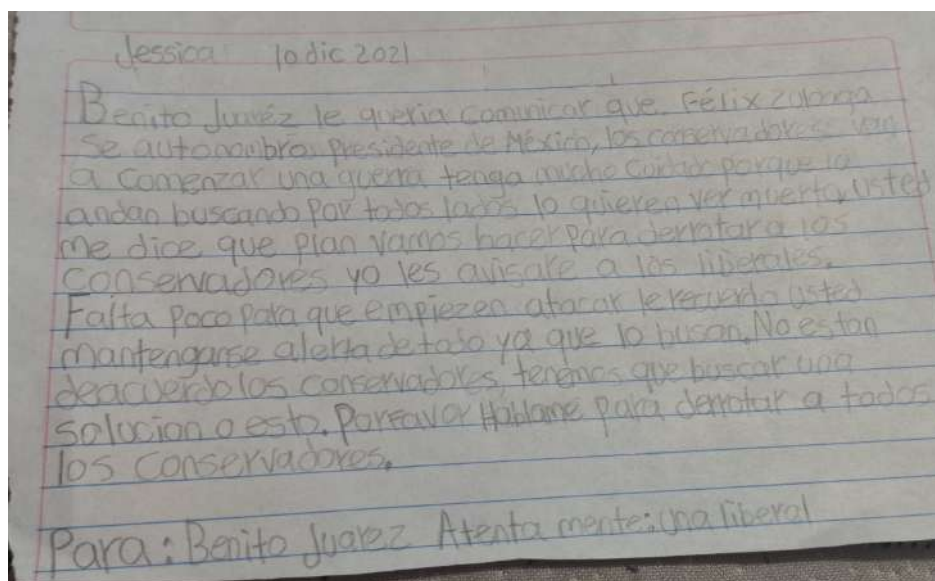 Jessica 10 dic 2021
Benito Juaréz le queria comunicar que Félix Zuloaga
se autonombro presidente de México, los conservadores van
a comenzar una guerra tenga mucho cuidado porque lo
andan buscando por todos lados lo quieren ver muerto, usted
me dice que plan vamos hacer para derrotar a los
conservadores yo les avisare a los liberales.
Falta poco para que empiezen atacar le recuerdo usted
mantengarse alerta de todo ya que lo busan. No estan
deacuerdo los conservadores tenemos que buscar una
solucion a esto. Porfavor Háblame para derrotar a todos
los conservadores.
Para: Benito Juarez Atenta mente: una liberal